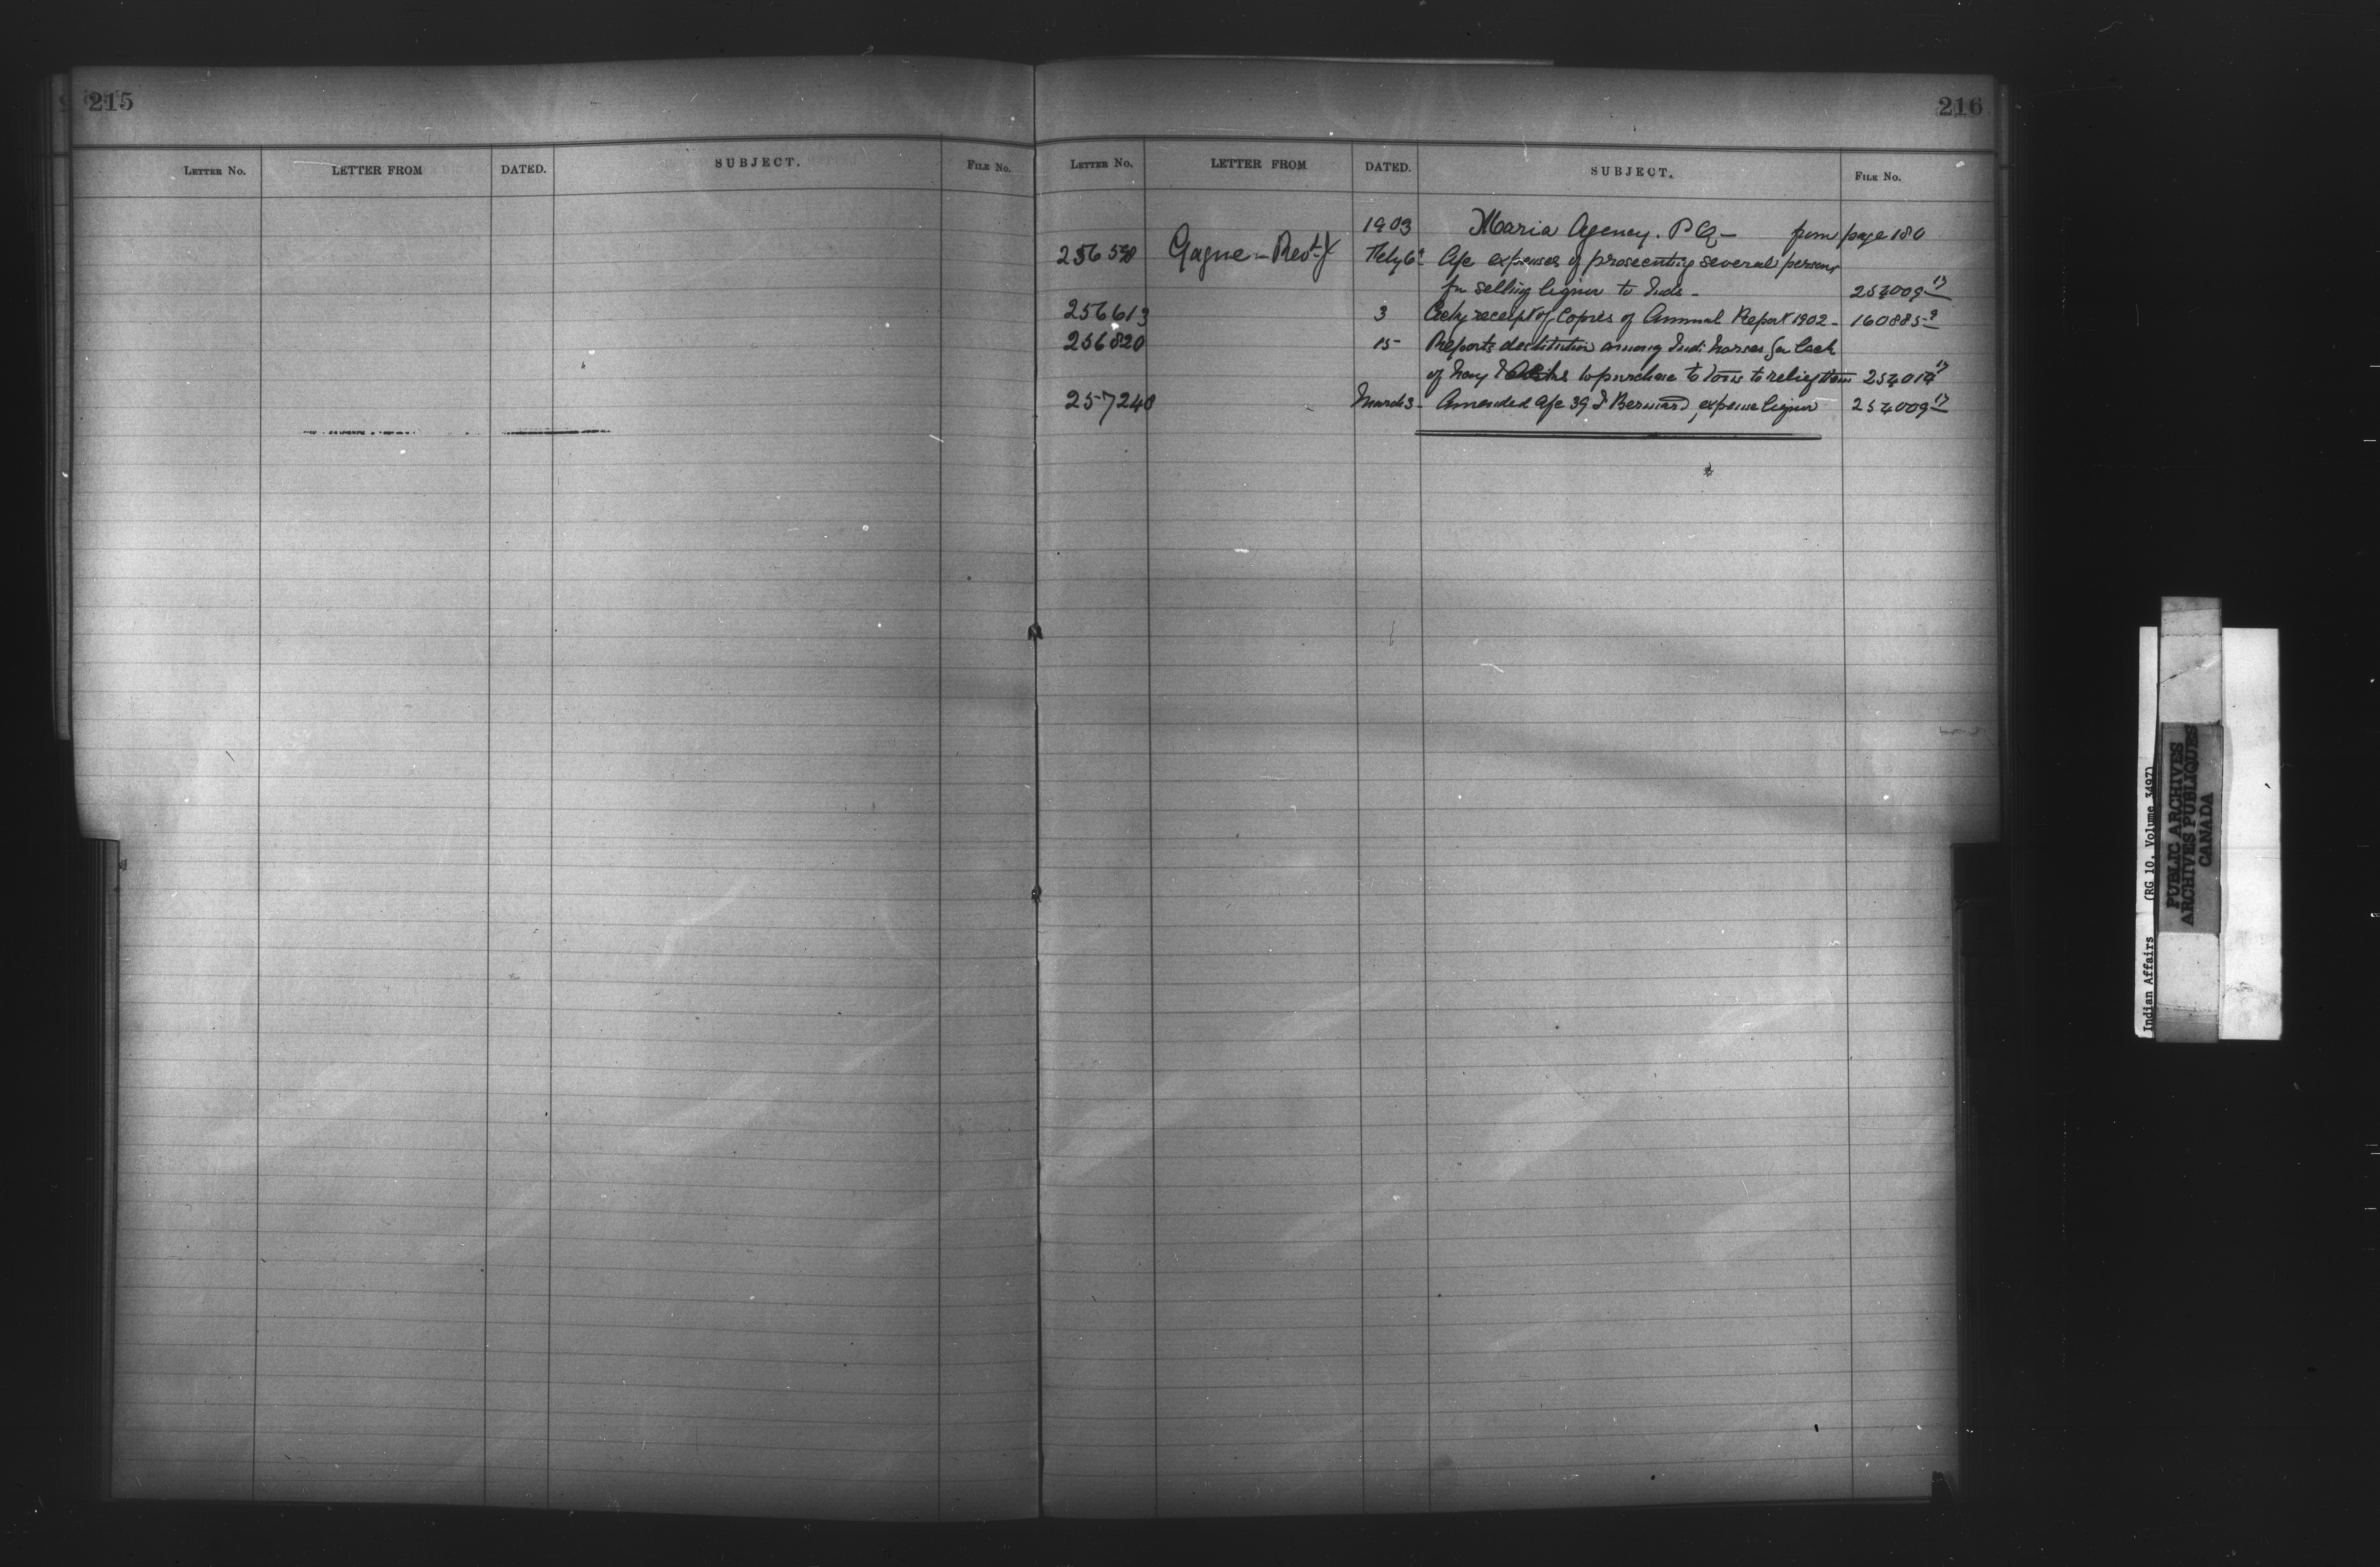 215
LETTER NO. LETTER FROM DATED. SUBJECT. FILE NO.
216
LETTER NO. LETTER FROM DATED. SUBJECT. FILE NO.
1903 Maria Agency. P Q— from page 180
Gagne — Revd J Feby 6 expenses of prosecuting several persons
for selling liquor to Inds — 254009 17
256613 3 receipt of Copies of Annual Report 1902 — 160885 9
256820 15 Reports destitution among Indi: horses for lack
of hay & to purchase to 254014 17
257240 March 3 — Amended 39 J Bernard, expense liquor 254009 17
Indian Affairs (RG 10, Volume 3497)
PUBLIC ARCHIVES
ARCHIVES PUBLIQUES
CANADA